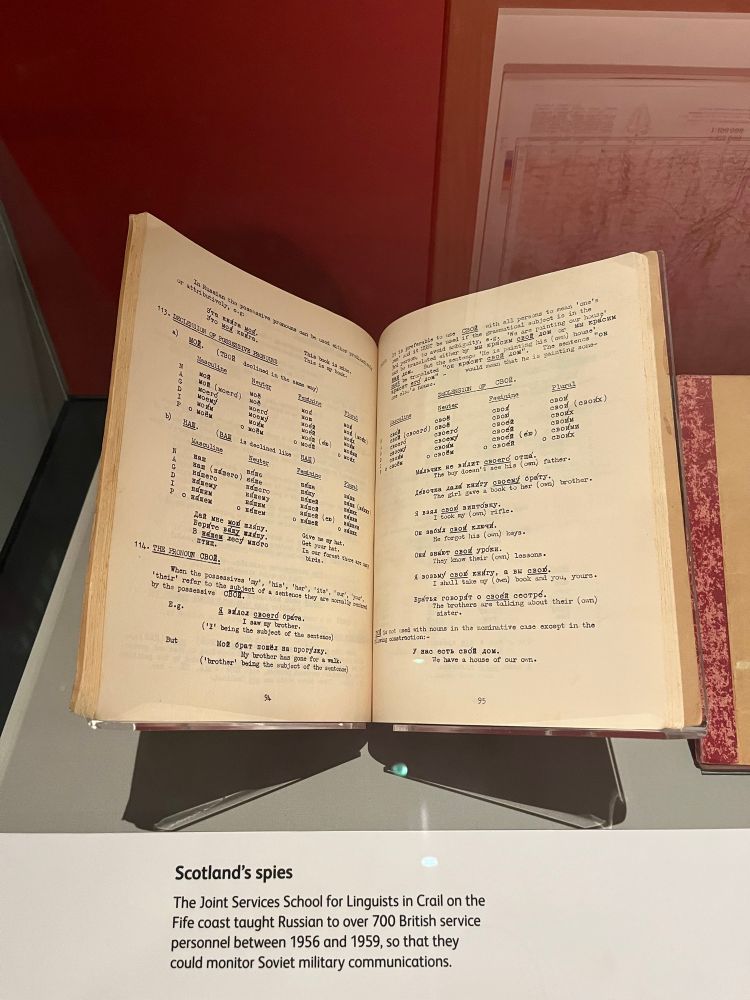 In Russian the possessive pronouns can be used either predicatively
or attributively, e.g:
Эта книга моя. This book is mine.
Это моя книга. This is my book.
113. DECLENSION OF POSSESSIVE PRONOUNS
a) МОЙ. (ТВОЙ declined in the same way)
Masculine Neuter Feminine Plural
N мой моё моя мои
A мой (моего) моё мою мои
G моего моего моей
D моему моему моей моим
I моим моим
P о моём о моём о моей о моих
b) НАШ. (ВАШ is declined like НАШ)
Masculine Neuter Feminine Plural
N наш наше наша наши
A наш (нашего) наше нашу наши
G нашего нашего нашей наших
D нашему нашему нашей нашим
I нашим нашим нашей (ею) нашими
P о нашем о нашем о нашей о наших
Дай мне мою шляпу. Give me my hat.
Берите вашу шляпу. Get your hat.
В нашем лесу много In our forest there are many
птиц. birds.
114. THE PRONOUN СВОЙ.
When the possessives 'my', 'his', 'her', 'its', 'our', 'your',
'their' refer to the subject of a sentence they are normally rendered
by the possessive СВОЙ.
E.g. Я видел своего брата.
I saw my brother.
('I' being the subject of the sentence)
But Мой брат пошёл на прогулку.
My brother has gone for a walk.
('brother' being the subject of the sentence)
94
It is preferable to use СВОЙ with all persons to mean 'one's
own' and it MUST be used if the grammatical subject is in the
3rd person, to avoid ambiguity, e.g. 'We are painting our house'
can be translated either by мы красим свой дом or мы красим
наш дом. But the sentence 'He is painting his (own) house'
must be translated "он красит свой дом". The sentence "он
красит его дом" would mean that he is painting some-
one else's house.
DECLENSION OF СВОЙ.
Masculine Neuter Feminine Plural
свой своё своя свои
свой (своего) своё свою свои (своих)
своего своего своей своих
своему своему своей своим
своим своим своей (ею) своими
о своём о своём о своей о своих
Мальчик не видит своего отца.
The boy doesn't see his (own) father.
Девочка дала книгу своему брату.
The girl gave a book to her (own) brother.
Я взял свою винтовку.
I took my (own) rifle.
Он забыл свои ключи.
He forgot his (own) keys.
Они знают свои уроки.
They know their (own) lessons.
Я возьму свою книгу, а вы свою.
I shall take my (own) book and you, yours.
Братья говорят о своей сестре.
The brothers are talking about their (own)
sister.
is not used with nouns in the nominative case except in the
following construction:-
У нас есть свой дом.
We have a house of our own.
95
Scotland's spies
The Joint Services School for Linguists in Crail on the
Fife coast taught Russian to over 700 British service
personnel between 1956 and 1959, so that they
could monitor Soviet military communications.